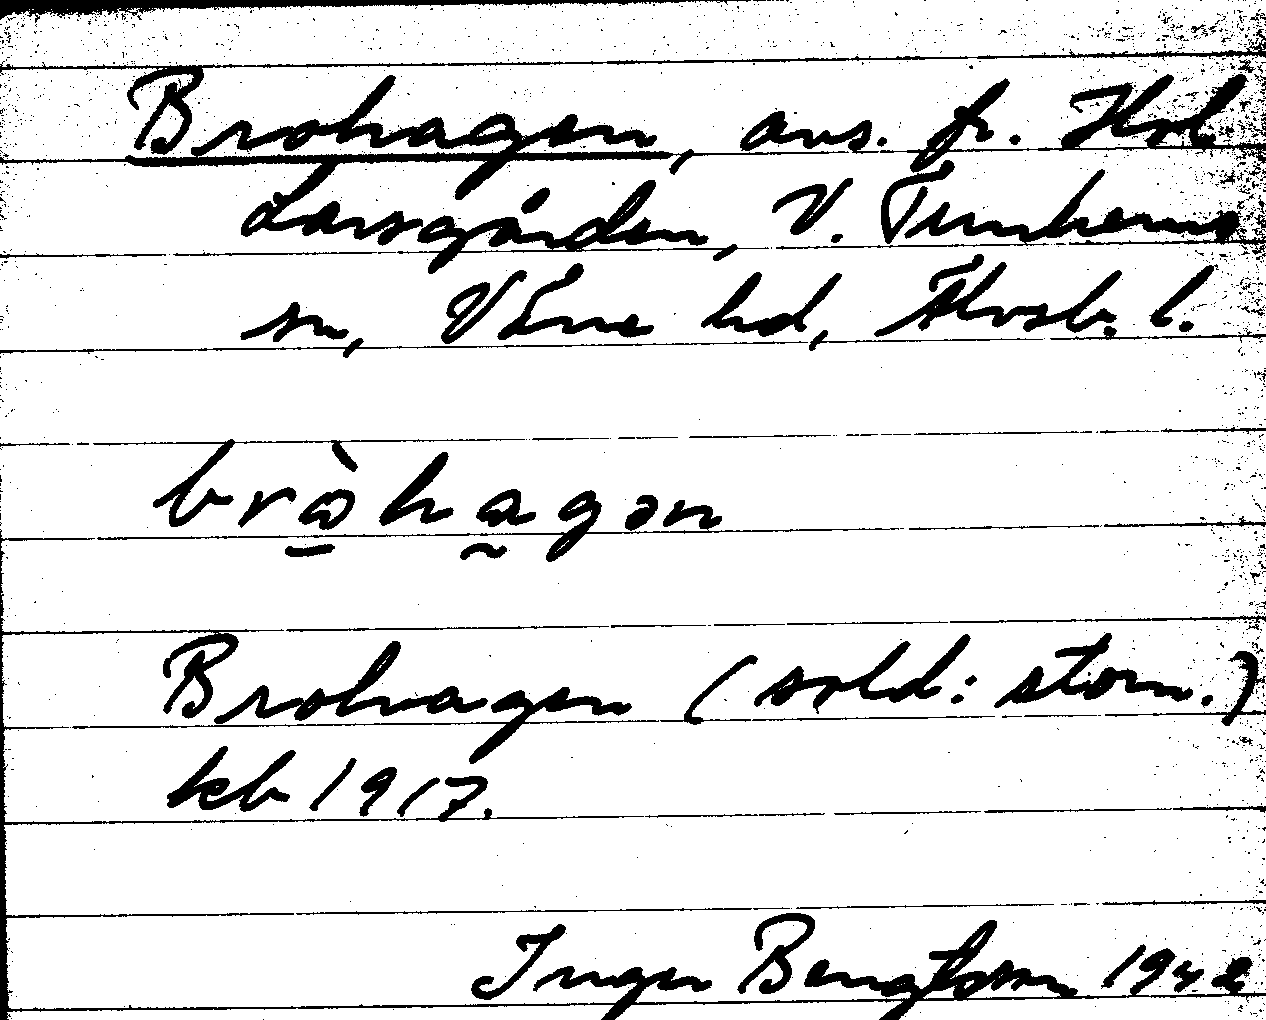 Brohagen, avs. fr. Hol
Larsgården, V. Tunhems
sn, Väne hd, Älvsb. l.
brò̱ha̰gən
Brohagen (sold: stom.)
kb 1917.
Inger Bengtsson 1942